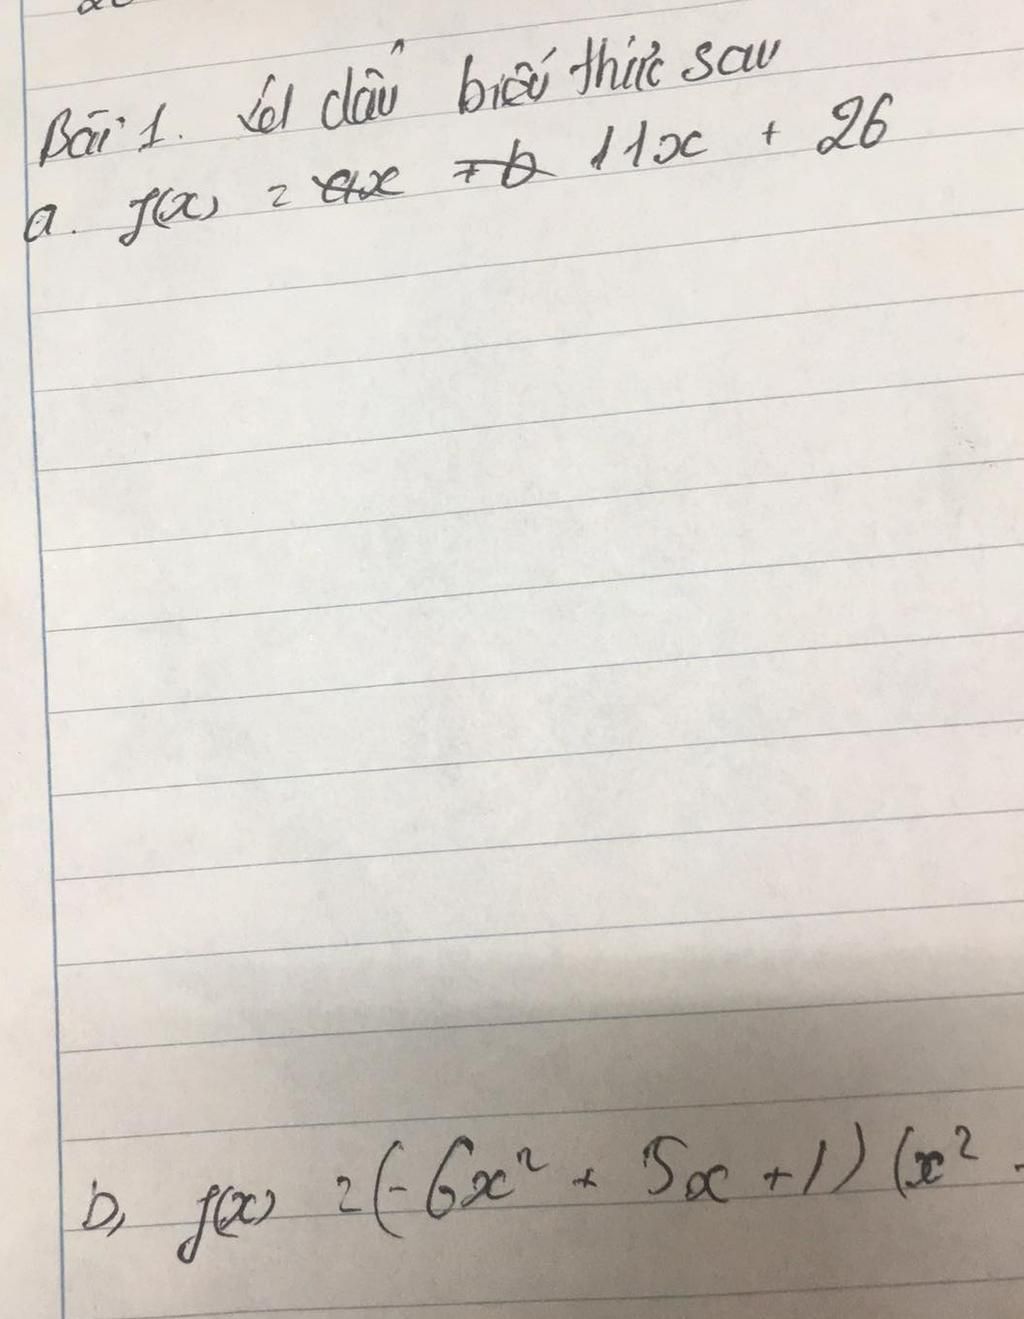 Bài 1. Xét dấu biểu thức sau
a. f(x) = 11x + 26
b, f(x) = (-6x² + 5x + 1) (x² -